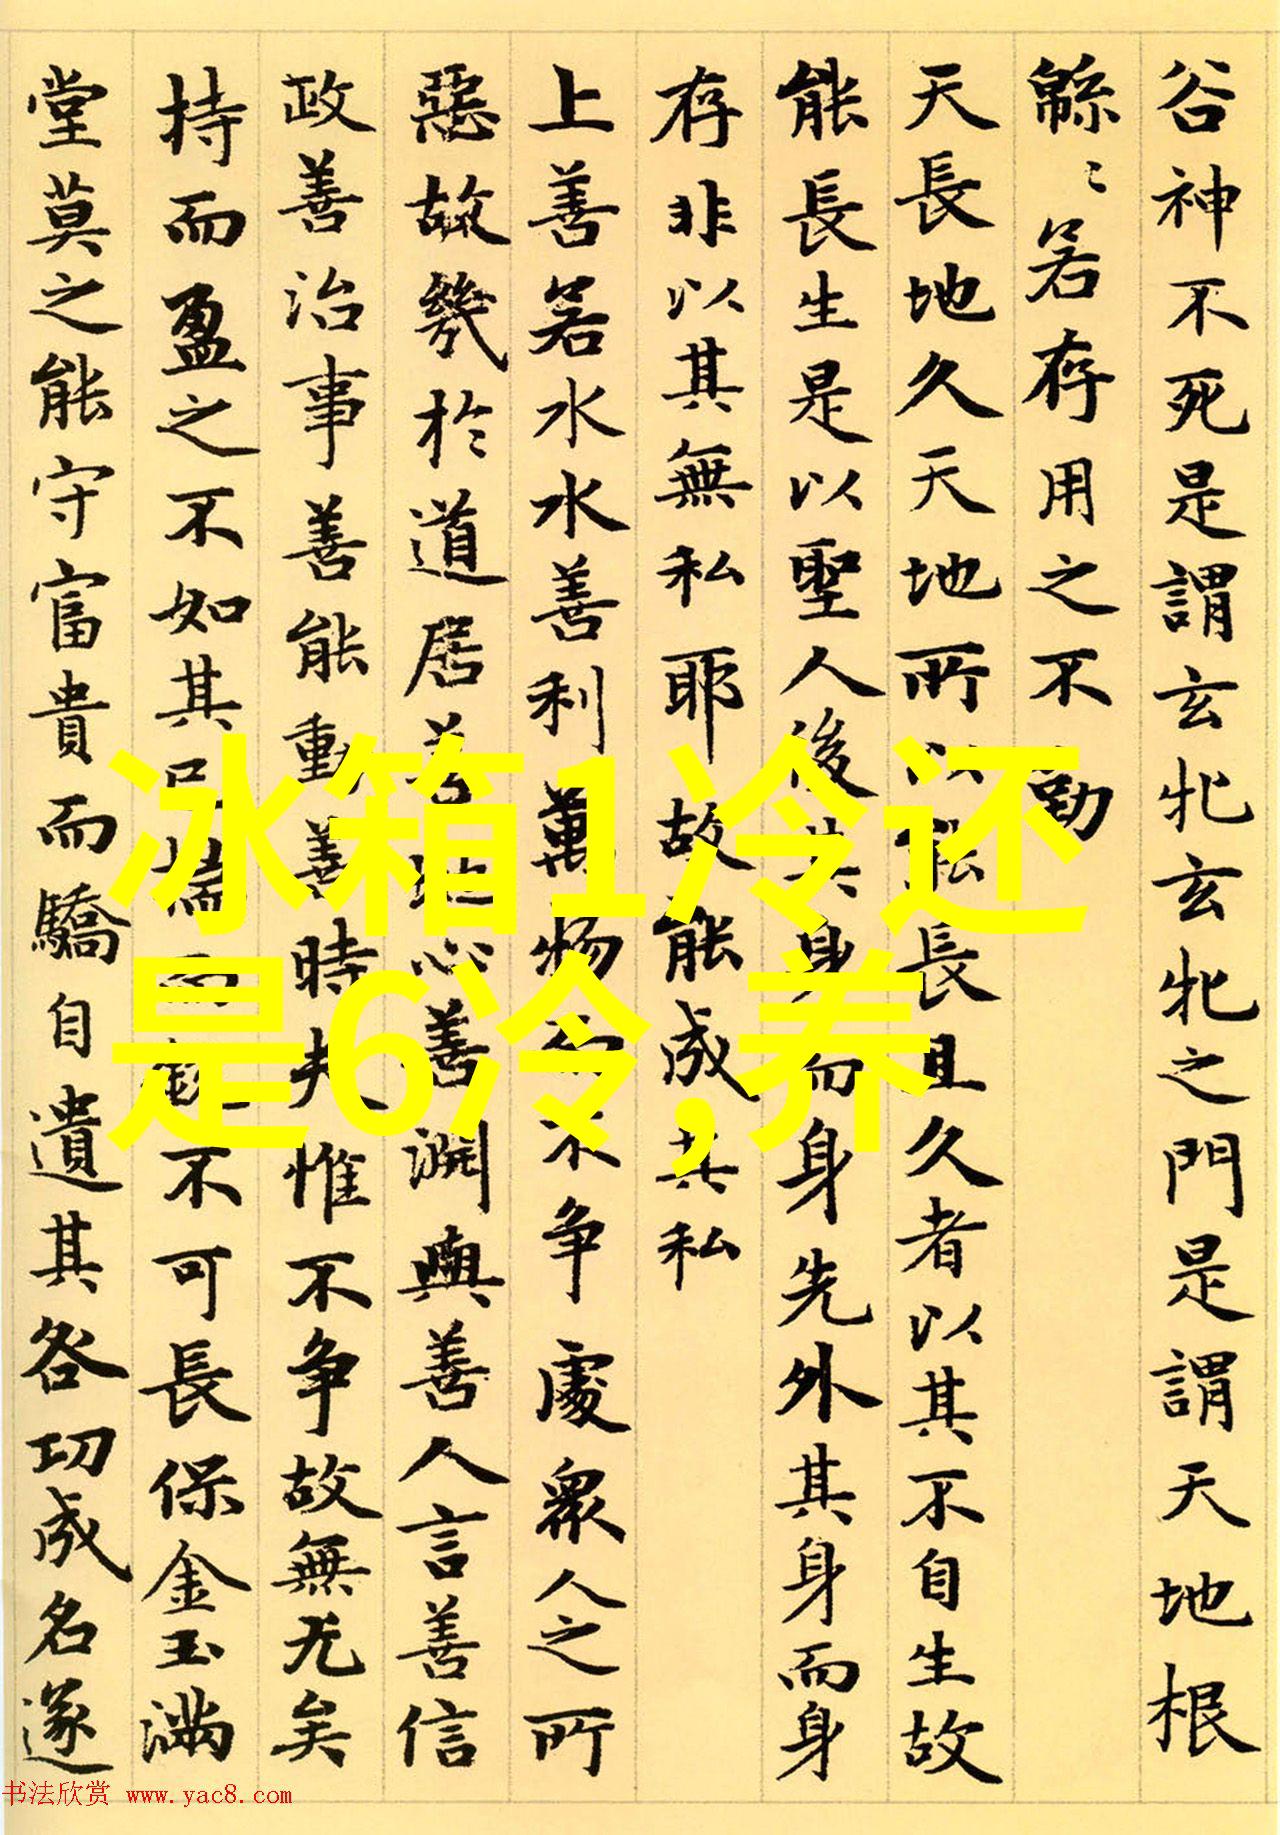 谷神不死是謂玄牝玄牝之門是謂天地根
緜〻若存用之不勤
天長地久天地所以能長且久者以其不自生故
能長生是以聖人後其身而身先外其身而身
存非以其無私耶故能成其私
上善若水水善利萬物而不争處衆人之所
惡故幾於道居善地心善淵與善人言善信
政善治事善能動善時夫惟不争故無尤矣
持而盈之不如其已揣而銳不可長保金玉滿
堂莫之能守富貴而驕自遺其咎功成名遂
冰箱1冷还
是6冷,养
书法欣赏 www.yac8.com